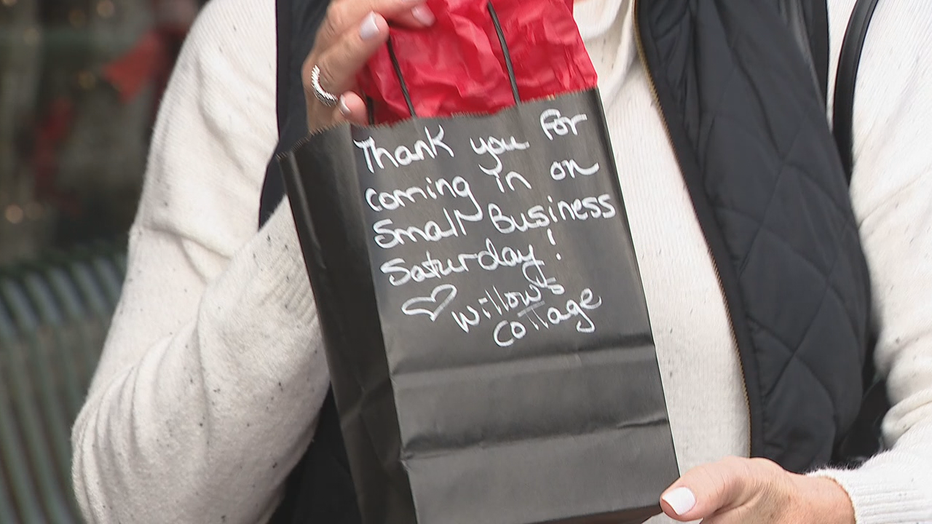 Thank you for
coming in on
Small Business
Saturday!
♡ Willow's
Cottage